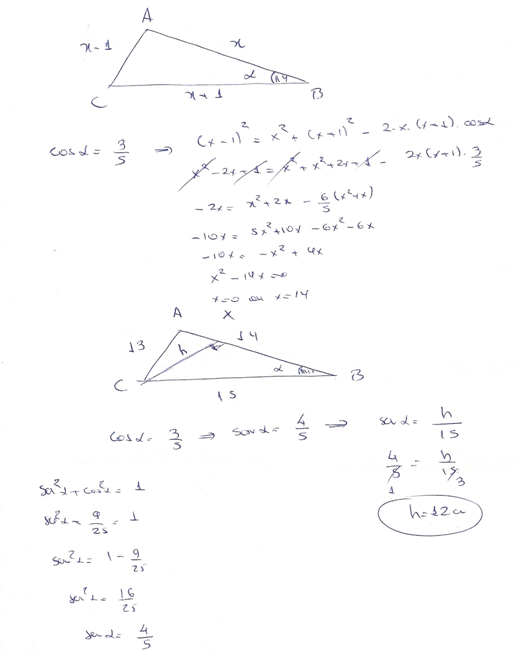 A
x-1
x
α
C
x+1
B
cos α = 3/5 ⇒ (x-1)² = x² + (x+1)² - 2·x·(x+1)·cos α
x² - 2x + 1 = x² + x² + 2x + 1 - 2x(x+1)·3/5
-2x = x² + 2x - 6/5(x²+x)
-10x = 5x² + 10x - 6x² - 6x
-10x = -x² + 4x
x² - 14x = 0
x=0 ou x=14
X
A
13
h
14
α
C
15
B
cos α = 3/5 ⇒ sen α = 4/5 ⇒ sen α = h/15
4/5 = h/15
1 3
h=12
sen²α + cos²α = 1
sen²α + 9/25 = 1
sen²α = 1 - 9/25
sen²α = 16/25
sen α = 4/5